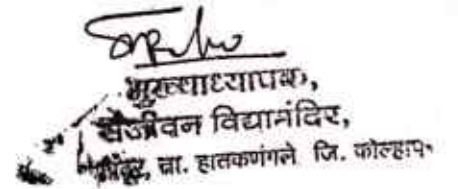 मुख्याध्यापक,
संजीवन विद्यामंदिर,
ता. हातकणंगले जि. कोल्हापूर